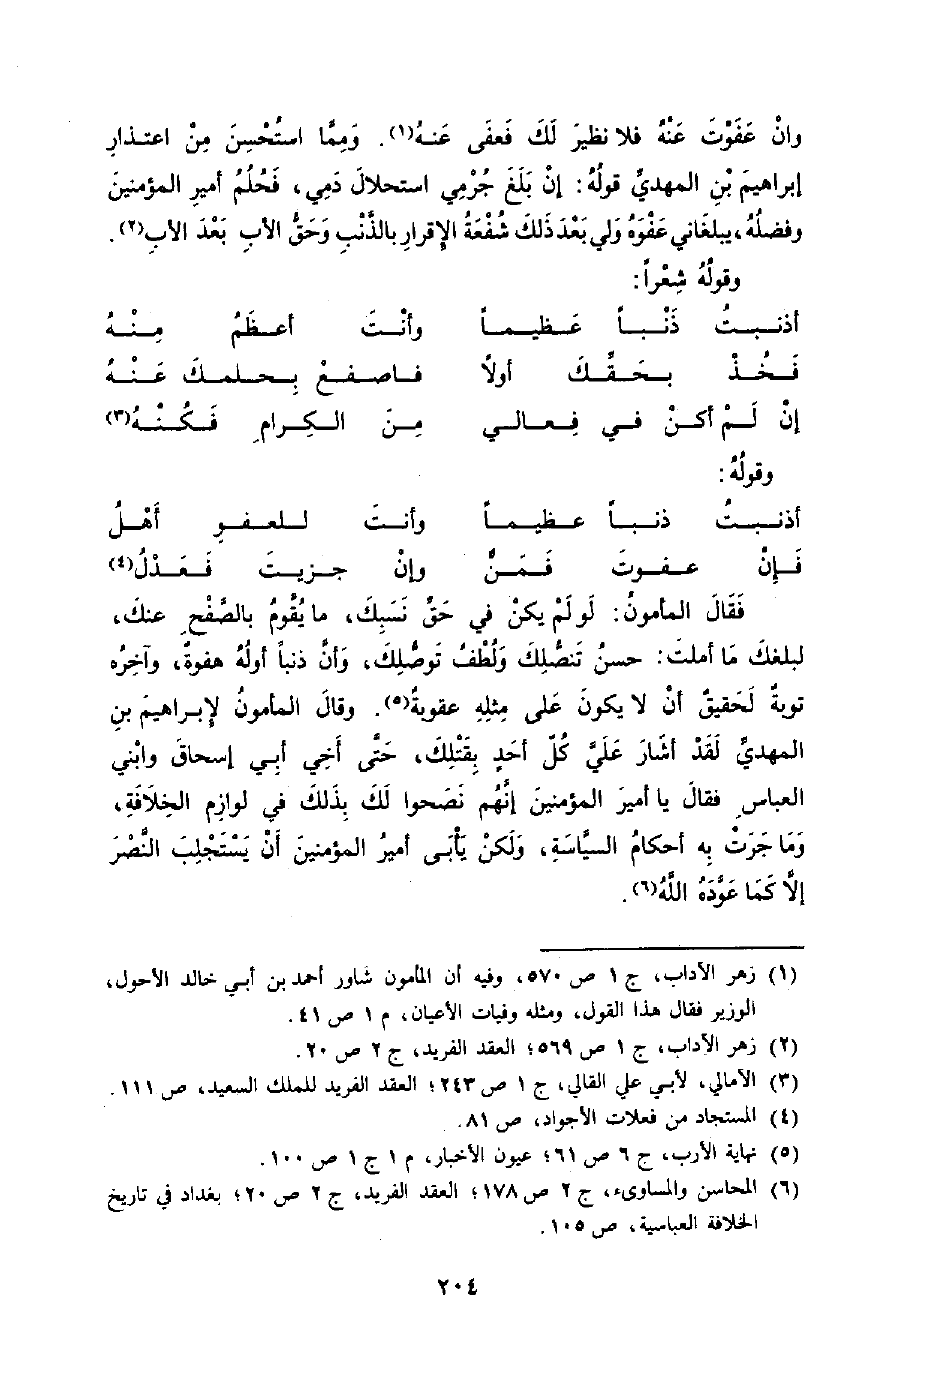 وانْ عَفَوْتَ عَنْهُ فلا نظيرَ لَكَ فَعفَى عَنهُ(١). وَمِمَّا استُحْسِنَ مِنْ اعتذارِ
إبراهيمَ بْنِ المهديِّ قولُهُ: إنْ بَلَغَ جُرْمِي استحلالَ دَمِي، فَحُلْمُ أميرِ المؤمنينَ
وفضلُهُ، يبلغَاني عَفْوَهُ وَلي بَعْدَ ذَلكَ شُفْعَةُ الإقرارِ بالذَّنْبِ وَحَقُّ الأبِ بَعْدَ الأبِ(٢).
وقولُهُ شِعْراً:
أذنبتُ ذَنْباً عَظيماً وأنْتَ أعظَمُ مِنْهُ
فَخُذْ بحَقِّكَ أولاً فاصفحْ بِحلمكَ عَنْهُ
إنْ لَمْ أكنْ في فِعالي مِنَ الكِرامِ فَكُنْهُ(٣)
وقولُهُ:
أذنبتُ ذنباً عظيماً وأنتَ للعفوِ أَهْلُ
فَإنْ عفوتَ فَمَنٌّ وإنْ جزيتَ فَعَدْلُ(٤)
فَقَالَ المأمونُ: لَو لَمْ يكنْ في حَقِّ نَسَبِكَ، ما يُقَوِّمُ بالصَّفْحِ عنكَ،
لبلغكَ مَا أملتَ: حسنُ تَنصُّلِكَ وَلُطْفُ تَوصُّلِكَ، وَأنَّ ذنباً أولُهُ هفوةٌ، وآخِرُه
توبةٌ لَحَقيقٌ أنْ لا يكونَ عَلى مِثلِهِ عقوبةٌ(٥). وقالَ المأمونُ لإبراهيمَ بنِ
المهديِّ لَقَدْ أشَارَ عَلَيَّ كُلّ أحَدٍ بِقَتْلِكَ، حَتَّى أَخِي أبي إسحاقَ وابْني
العباسِ فقالَ يا أميرَ المؤمنينَ إنَّهُم نَصَحوا لَكَ بِذَلكَ في لوازِمِ الخِلَافَةِ،
وَمَا جَرَتْ بِه أحكامُ السِّيَاسَةِ، وَلَكنْ يَأْبَى أميرُ المؤمنينَ أنْ يَسْتَجْلِبَ النَّصْرَ
إلَّا كَمَا عَوَّدَهُ اللَّهُ(٦).
(١) زهر الآداب، ج ١ ص ٥٧٠، وفيه أن المأمون شاور أحمد بن أبي خالد الأحول،
الوزير فقال هذا القول، ومثله وفيات الأعيان، م ١ ص ٤١.
(٢) زهر الآداب، ج ١ ص ٥٦٩؛ العقد الفريد، ج ٢ ص ٢٠.
(٣) الأمالي، لأبي علي القالي، ج ١ ص ٢٤٣؛ العقد الفريد للملك السعيد، ص ١١١.
(٤) المستجاد من فعلات الأجواد، ص ٨١.
(٥) نهاية الأرب، ج ٦ ص ٦١؛ عيون الأخبار، م ١ ج ١ ص ١٠٠.
(٦) المحاسن والمساوىء، ج ٢ ص ١٧٨؛ العقد الفريد، ج ٢ ص ٢٠؛ بغداد في تاريخ
الخلافة العباسية، ص ١٠٥.
٢٠٤